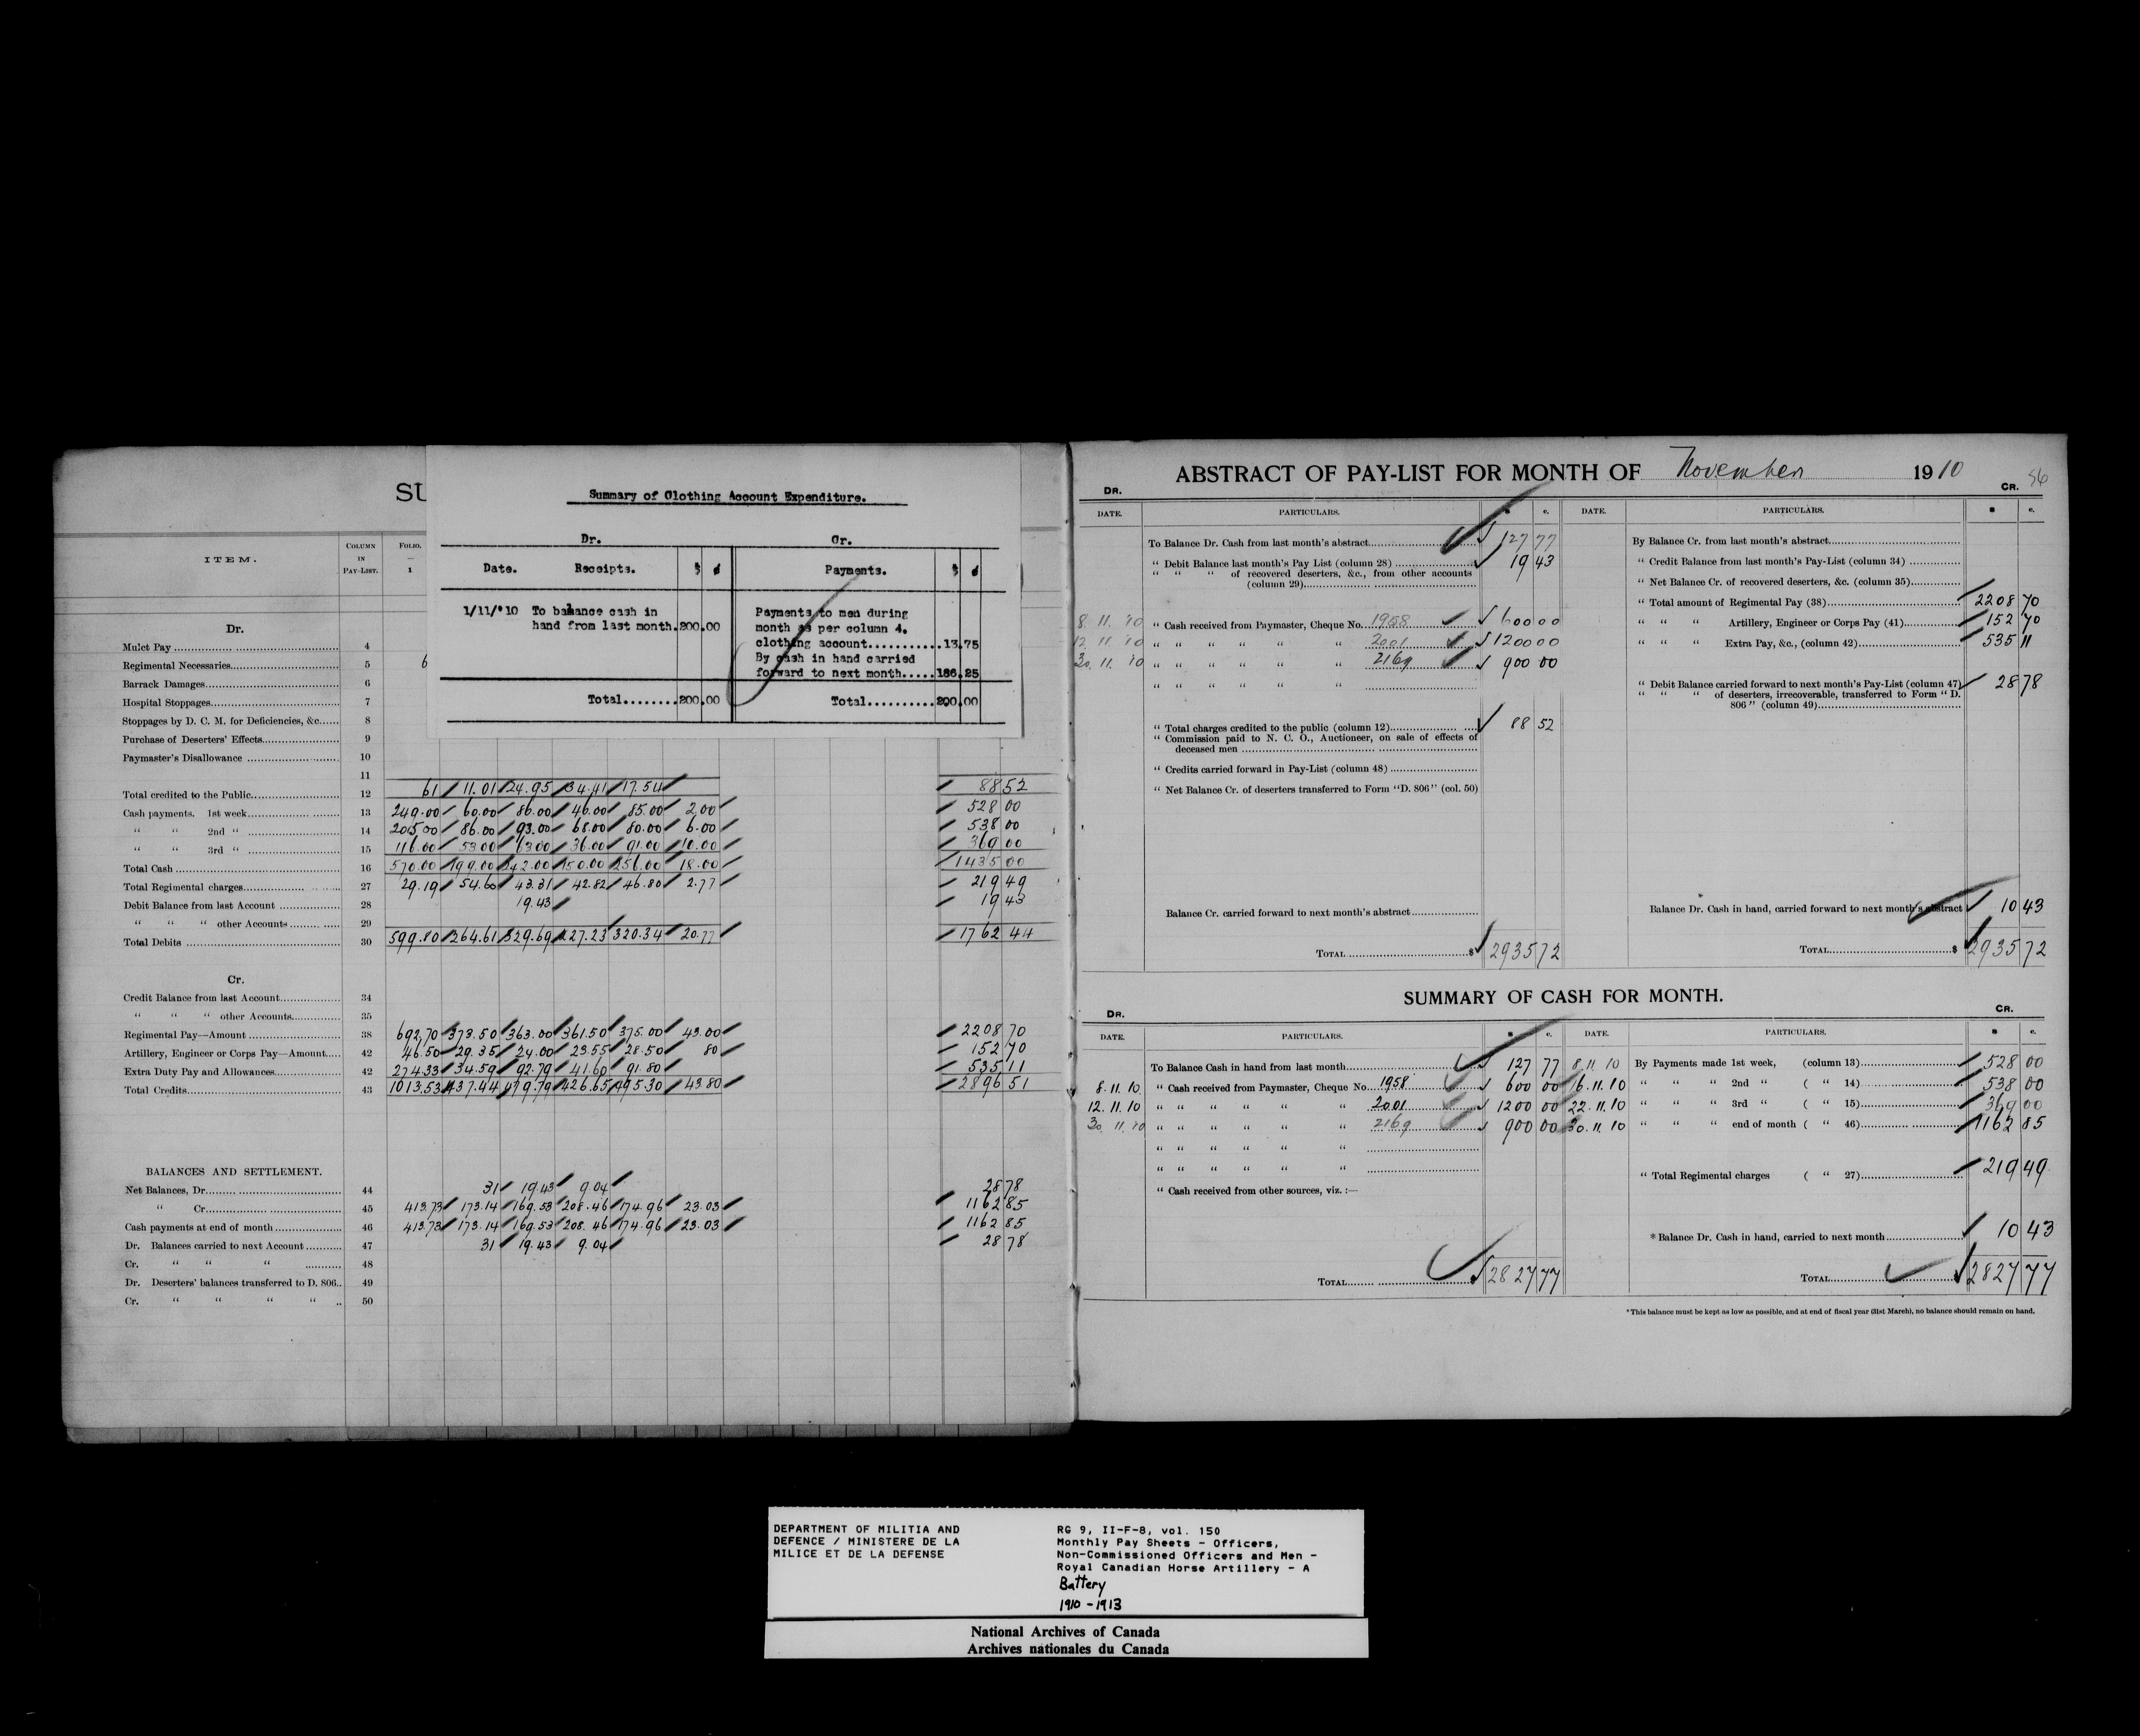 SU
ITEM.
COLUMN IN PAY-LIST.
FOLIO. — 1
Dr.
Mulct Pay 4
Regimental Necessaries 5 6
Barrack Damages 6
Hospital Stoppages 7
Stoppages by D. C. M. for Deficiencies, &c. 8
Purchase of Deserters' Effects 9
Paymaster's Disallowance 10
11
Total credited to the Public 12 61 11.01 24.95 34.41 17.54 88 52
Cash payments. 1st week 13 249.00 60.00 86.00 46.00 85.00 2.00 528 00
" " 2nd " 14 205.00 86.00 93.00 68.00 80.00 6.00 538 00
" " 3rd " 15 116.00 53.00 63.00 36.00 91.00 10.00 369 00
Total Cash 16 570.00 199.00 242.00 150.00 256.00 18.00 1435 00
Total Regimental charges 27 29.19 54.60 43.31 42.82 46.80 2.77 219 49
Debit Balance from last Account 28 19.43 19 43
" " " other Accounts 29
Total Debits 30 599.80 264.61 329.69 227.23 320.34 20.77 1762 44
Cr.
Credit Balance from last Account 34
" " " other Accounts 35
Regimental Pay—Amount 38 692.70 373.50 363.00 361.50 375.00 43.00 2208 70
Artillery, Engineer or Corps Pay—Amount 42 46.50 29.35 24.00 23.55 28.50 80 152 70
Extra Duty Pay and Allowances 42 274.33 34.59 92.79 41.60 91.80 535 11
Total Credits 43 1013.53 437.44 479.79 426.65 495.30 43.80 2896 51
BALANCES AND SETTLEMENT.
Net Balances, Dr. 44 31 19.43 9.04 28 78
" Cr. 45 413.73 173.14 169.53 208.46 174.96 23.03 1162 85
Cash payments at end of month 46 413.73 173.14 169.53 208.46 174.96 23.03 1162 85
Dr. Balances carried to next Account 47 31 19.43 9.04 28 78
Cr. " " " 48
Dr. Deserters' balances transferred to D. 806.. 49
Cr. " " " " .. 50
Summary of Clothing Account Expenditure.
Dr. Cr.
Date. Receipts. $ ¢ Payments. $ ¢
1/11/'10 To balance cash in
hand from last month. 200.00
Payments to men during
month as per column 4.
clothing account........... 13.75
By cash in hand carried
forward to next month..... 186.25
Total........ 200.00 Total.......... 200.00
ABSTRACT OF PAY-LIST FOR MONTH OF November 1910
56
DR. CR.
DATE. PARTICULARS. $ c. DATE. PARTICULARS. $ c.
To Balance Dr. Cash from last month's abstract 127 77
" Debit Balance last month's Pay List (column 28) 19 43
" " " of recovered deserters, &c., from other accounts
(column 29)
8. 11. '10 " Cash received from Paymaster, Cheque No. 1958 600 00
12. 11. '10 " " " " " 2001 1200 00
30. 11. '10 " " " " " 2169 900 00
" " " " " "
" Total charges credited to the public (column 12) 88 52
" Commission paid to N. C. O., Auctioneer, on sale of effects of
deceased men
" Credits carried forward in Pay-List (column 48)
" Net Balance Cr. of deserters transferred to Form "D. 806" (col. 50)
Balance Cr. carried forward to next month's abstract
TOTAL $ 2935 72
By Balance Cr. from last month's abstract
" Credit Balance from last month's Pay-List (column 34)
" Net Balance Cr. of recovered deserters, &c. (column 35)
" Total amount of Regimental Pay (38) 2208 70
" " " Artillery, Engineer or Corps Pay (41) 152 70
" " " Extra Pay, &c., (column 42) 535 11
" Debit Balance carried forward to next month's Pay-List (column 47) 28 78
" " " of deserters, irrecoverable, transferred to Form "D.
806" (column 49)
Balance Dr. Cash in hand, carried forward to next month's abstract 10 43
TOTAL $ 2935 72
SUMMARY OF CASH FOR MONTH.
DR. CR.
DATE. PARTICULARS. $ c. DATE. PARTICULARS. $ c.
To Balance Cash in hand from last month 127 77
8.11.10. " Cash received from Paymaster, Cheque No. 1958 600 00
12.11.10 " " " " " 2001 1200 00
30.11.10 " " " " " 2169 900 00
" " " " " "
" " " " " "
" Cash received from other sources, viz. :—
TOTAL 2827 77
8.11.10 By Payments made 1st week, (column 13) 528 00
16.11.10 " " " 2nd " ( " 14) 538 00
22.11.10 " " " 3rd " ( " 15) 369 00
30.11.10 " " " end of month ( " 46) 1162 85
" Total Regimental charges ( " 27) 219 49
* Balance Dr. Cash in hand, carried to next month 10 43
TOTAL 2827 77
* This balance must be kept as low as possible, and at end of fiscal year (31st March), no balance should remain on hand.
DEPARTMENT OF MILITIA AND
DEFENCE / MINISTERE DE LA
MILICE ET DE LA DEFENSE
RG 9, II-F-8, vol. 150
Monthly Pay Sheets - Officers,
Non-Commissioned Officers and Men -
Royal Canadian Horse Artillery - A
Battery
1910 - 1913
National Archives of Canada
Archives nationales du Canada